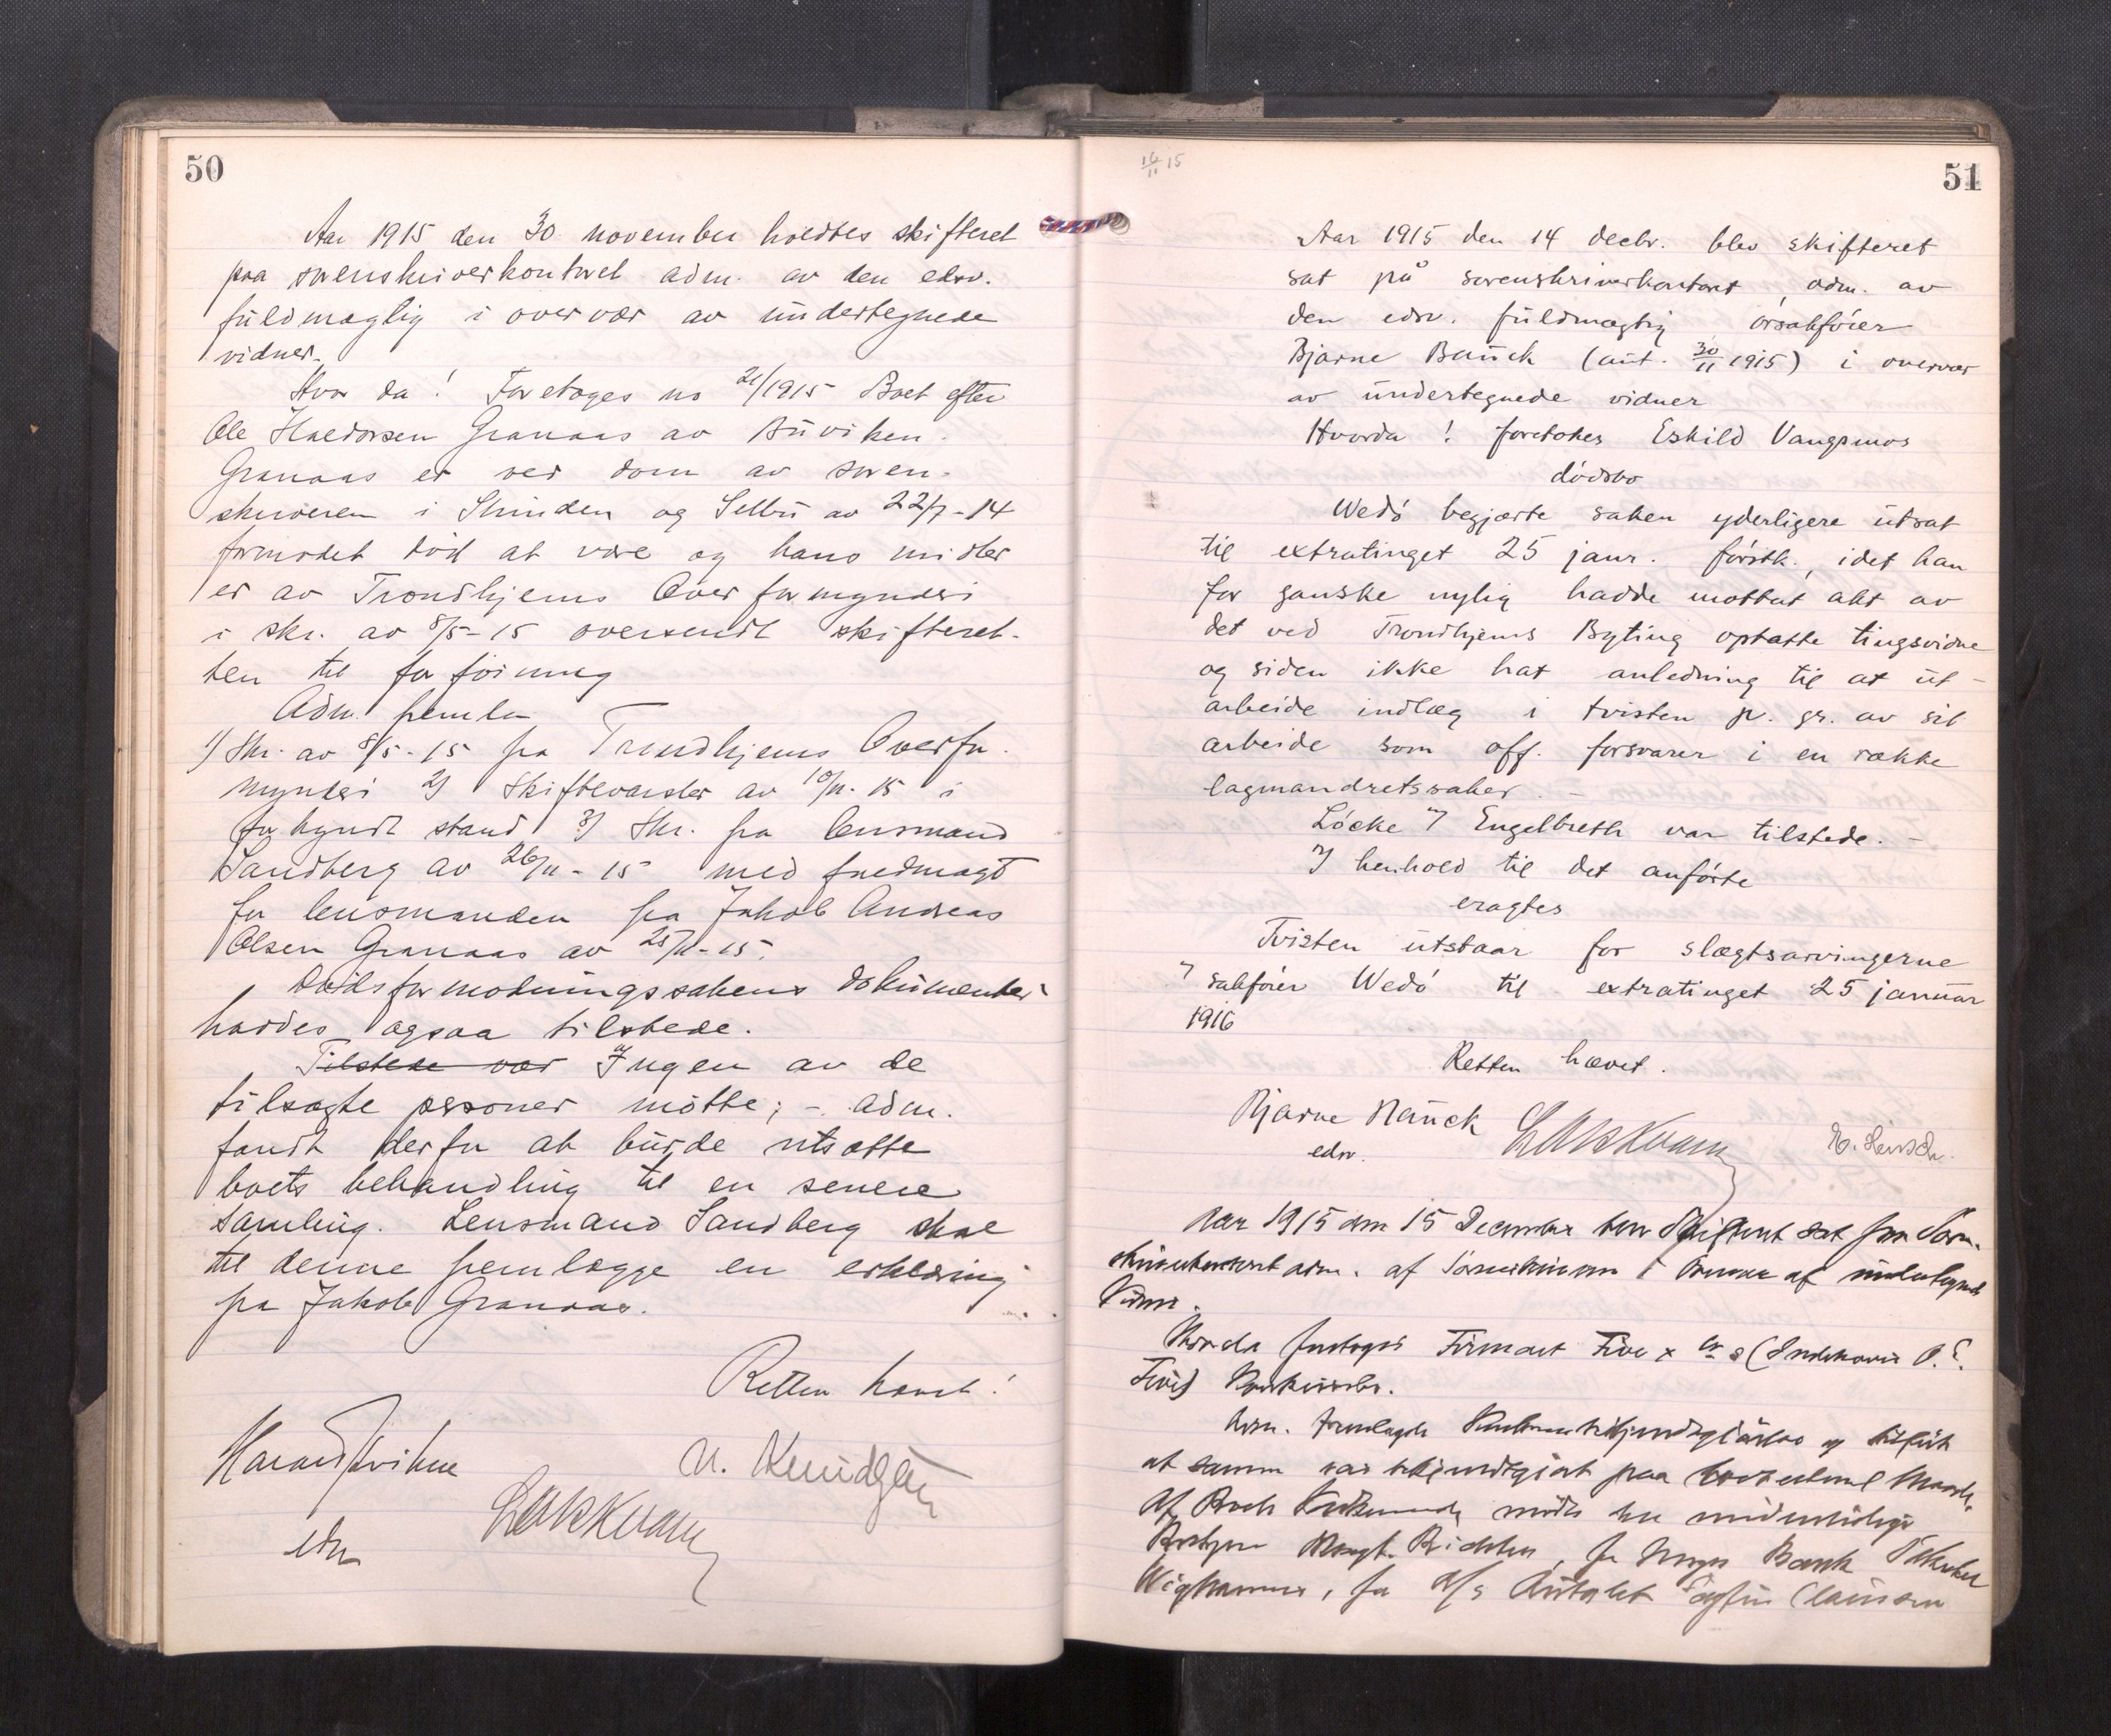 50
Aar 1915 den 30. november holdtes skifteret
paa sorenskriverkontoret adm. av den edsv.
fuldmægtig i overvær av undertegnede
vidner.
Hvor da! Foretoges no 21/1915 Boet efter
Ole Haldorsen Granaas av Buviken.
Granaas er ved dom av soren-
skriveren i Strinden og Selbu av 22/7-14
formodet død at være og hans midler
er av Trondhjems Overformynderi
i skr. av 8/5-15 oversendt skifteret-
ten til forføining
Adm. freml.
1) Skr. av 8/5-15 fra Trondhjems Overfor-
mynderi 2) Skiftevarsler av 10/11-15 i
forkyndt stand 3) Skr. fra lensmand
Sandberg av 26/11-15 med fuldmagt
for lensmanden fra Jakob Andreas
Olsen Granaas av 25/11-15.
Dødsformodningssakens dokumenter
haddes ogsaa tilstede.
Tilstede var Ingen av de
tilsagte personer møtte; - adm.
fandt derfor at burde utsætte
boets behandling til en senere
samling. Lensmand Sandberg skal
til denne fremlægge en erklæring
fra Jakob Granaas.
Retten hævet!
edsv
16/11 15
51
Aar 1915 den 14 decbr. blev skifteret
sat på sorenskriverkontoret, adm. av
den edsv. fuldmægtig, orsakfører
Bjarne Bauck (aut. 30/11 1915) i overvær
av undertegnede vidner
Hvorda! foretokes Eskild Vangsmos
dødsbo
Wedø begjærte saken yderligere utsat
til extratinget 25 janr. førstk., idet han
for ganske nylig hadde mottat akt av
det ved Trondhjems Byting optatte tingsvidne
og siden ikke hat anledning til at ut-
arbeide indlæg i tvisten p. gr. av sit
arbeide som off. forsvarer i en række
lagmandretssaker. -
Løcke Engelbreth var tilstede. -
I henhold til det anførte
eragtes
Tvisten utstaar for slægtsarvingerne
sakfører Wedø til extratinget 25 januar
1916
Retten hævet.
Bjarne Bauck
edsv.
Aar 1915 den 15 December blev Skifteret sat paa Soren-
skriverkontoret adm. af Sorenskriveren i Overvær af undertegnede
Vidner.
Hvorda foretoges Firmaet
Konkursbo.
Adm. fremlagde
at samme var bekjendtgjort paa
Af Boets
Bank
for A/s